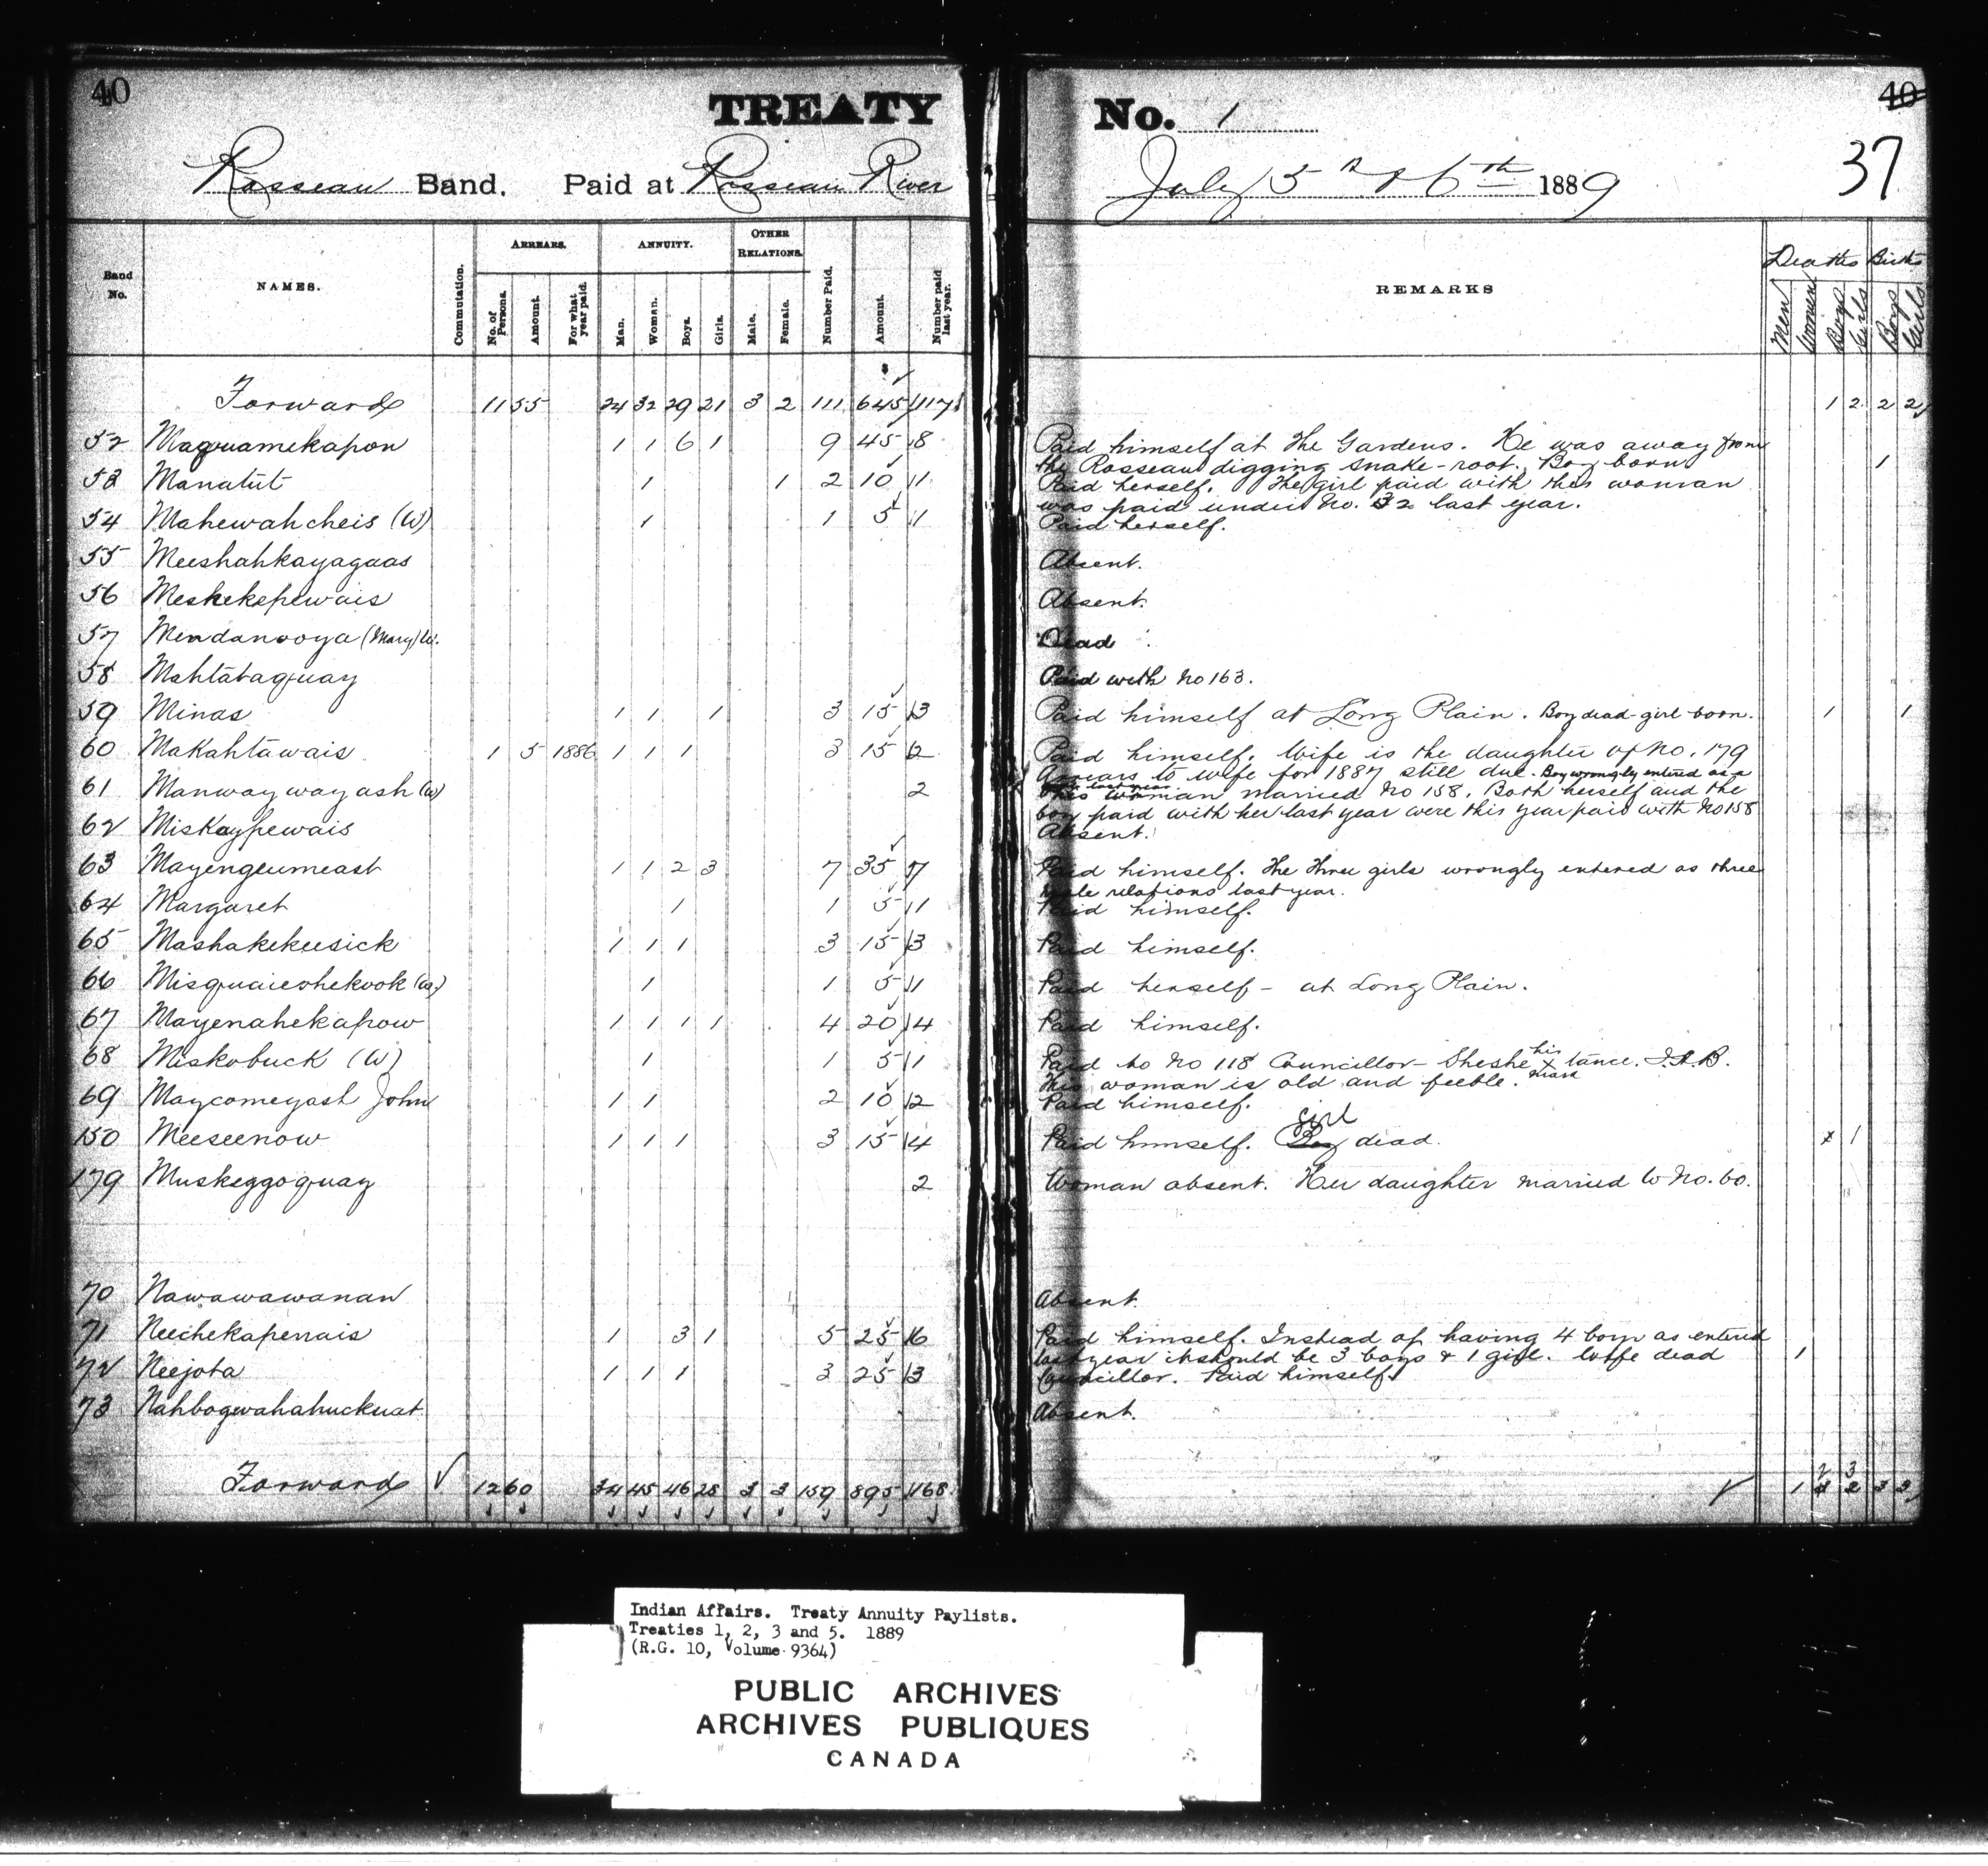 40
TREATY No. 1
40
37
Rosseau Band. Paid at Rosseau River
July 5th & 6th 1889
Band No. NAMES. Commutation. ARREARS. No. of Persons. Amount. For what year paid. ANNUITY. Man. Woman. Boys. Girls. OTHER RELATIONS. Male. Female. Number Paid. Amount. Number paid last year. REMARKS Deaths Men Women Boys Girls Births Boys Girls
$
Forward 11 55 24 32 29 21 3 2 111 645 117 1 2 2 2
52 Maquamekapon 1 1 6 1 9 45 8 Paid himself at the Gardens. He was away from
the Rosseau digging snake-root. Boy born 1
53 Manatut 1 1 2 10 1 Paid herself. The girl paid with this woman
was paid under No. 32 last year.
54 Mahewahcheis (W) 1 1 5 1 Paid herself.
55 Meeshahkayagaas Absent.
56 Meskekepewais Absent.
57 Mendanooya (Mary) W. Dead
58 Mahtataquay Paid with No 163.
59 Minas 1 1 1 3 15 3 Paid himself at Long Plain. Boy dead-girl born. 1 1
60 Makahtawais 1 5 1886 1 1 1 3 15 2 Paid himself. Wife is the daughter of No. 179
Arrears to wife for 1887 still due. Boy wrongly entered as a
last year.
61 Manwaywayash (W) 2 This woman married No 158. Both herself and the
boy paid with her last year were this year paid with No 158
62 Miskaypewais Absent.
63 Mayengeumeast 1 1 2 3 7 35 7 Paid himself. The three girls wrongly entered as three
male relations last year.
64 Margaret 1 1 5 1 Paid himself.
65 Mashakekeesick 1 1 1 3 15 3 Paid himself.
66 Misquaieshekook (W) 1 1 5 1 Paid herself - at Long Plain.
67 Mayenahekapow 1 1 1 1 4 20 4 Paid himself.
68 Miskobuck (W) 1 1 5 1 Paid to No 118 Councillor - Sheshe his x mark tance. J.A.B.
This woman is old and feeble.
69 Maycomeyash John 1 1 2 10 2 Paid himself.
150 Meeseenow 1 1 1 3 15 4 Paid himself. Boy girl dead. x 1
179 Muskeggoquay 2 Woman absent. Her daughter married to No. 60.
70 Nawawawanan Absent.
71 Neechekapenais 1 3 1 5 25 6 Paid himself. Instead of having 4 boys as entered
last year it should be 3 boys & 1 girl. Wife dead 1
72 Neejota 1 1 1 3 25 3 Councillor. Paid himself.
73 Nahbogwahahuckuat Absent.
Forward 12 60 34 45 46 28 3 3 159 895 168 1 2 3 3 3
Indian Affairs. Treaty Annuity Paylists.
Treaties 1, 2, 3 and 5. 1889
(R.G. 10, Volume 9364)
PUBLIC ARCHIVES
ARCHIVES PUBLIQUES
CANADA